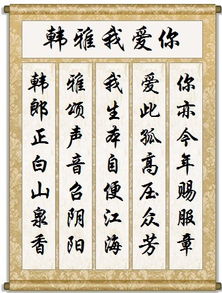 韩雅我爱你
韩郎正白山泉香
雅颂声音召阴阳
我生本自便江海
爱此孤高压众芳
你亦今年赐服章